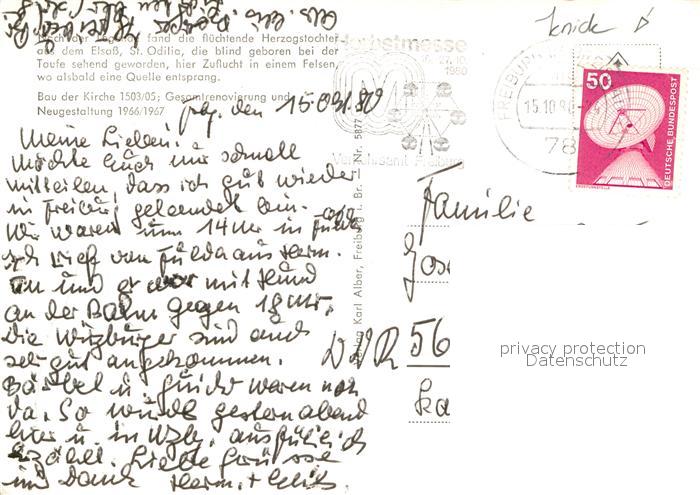 Nach der Legende fand die flüchtende Herzogstochter
aus dem Elsaß, St. Odilia, die blind geboren bei der
Taufe sehend geworden, hier Zuflucht in einem Felsen,
wo alsbald eine Quelle entsprang.
Bau der Kirche 1503/05; Gesamtrenovierung und
Neugestaltung 1966/1967
Herbstmesse
1980
Verkehrsamt Freiburg
knick
FREIBURG
15.10.80
78
50
DEUTSCHE BUNDESPOST
Verlag Karl Alber, Freiburg i. Br. – Nr. 5877
Fbg. den
Meine Lieben!
Möchte Euch nur schnell
mitteilen, dass ich gut wieder
in Freiburg gelandet bin.
Wir waren um 14 Uhr in Fulda
ich rief von Fulda aus Herm.
an und er war mit Hund
an der Bahn gegen 18 Uhr.
Die Würzburger sind auch
sehr gut angekommen.
Bärbel u. Guido waren noch
da. So wurde gestern abend
hier u. in Wzbg. ausführlich
erzählt. Liebe Grüsse
und Dank Herm. +
Familie
DDR 56
privacy protection
Datenschutz